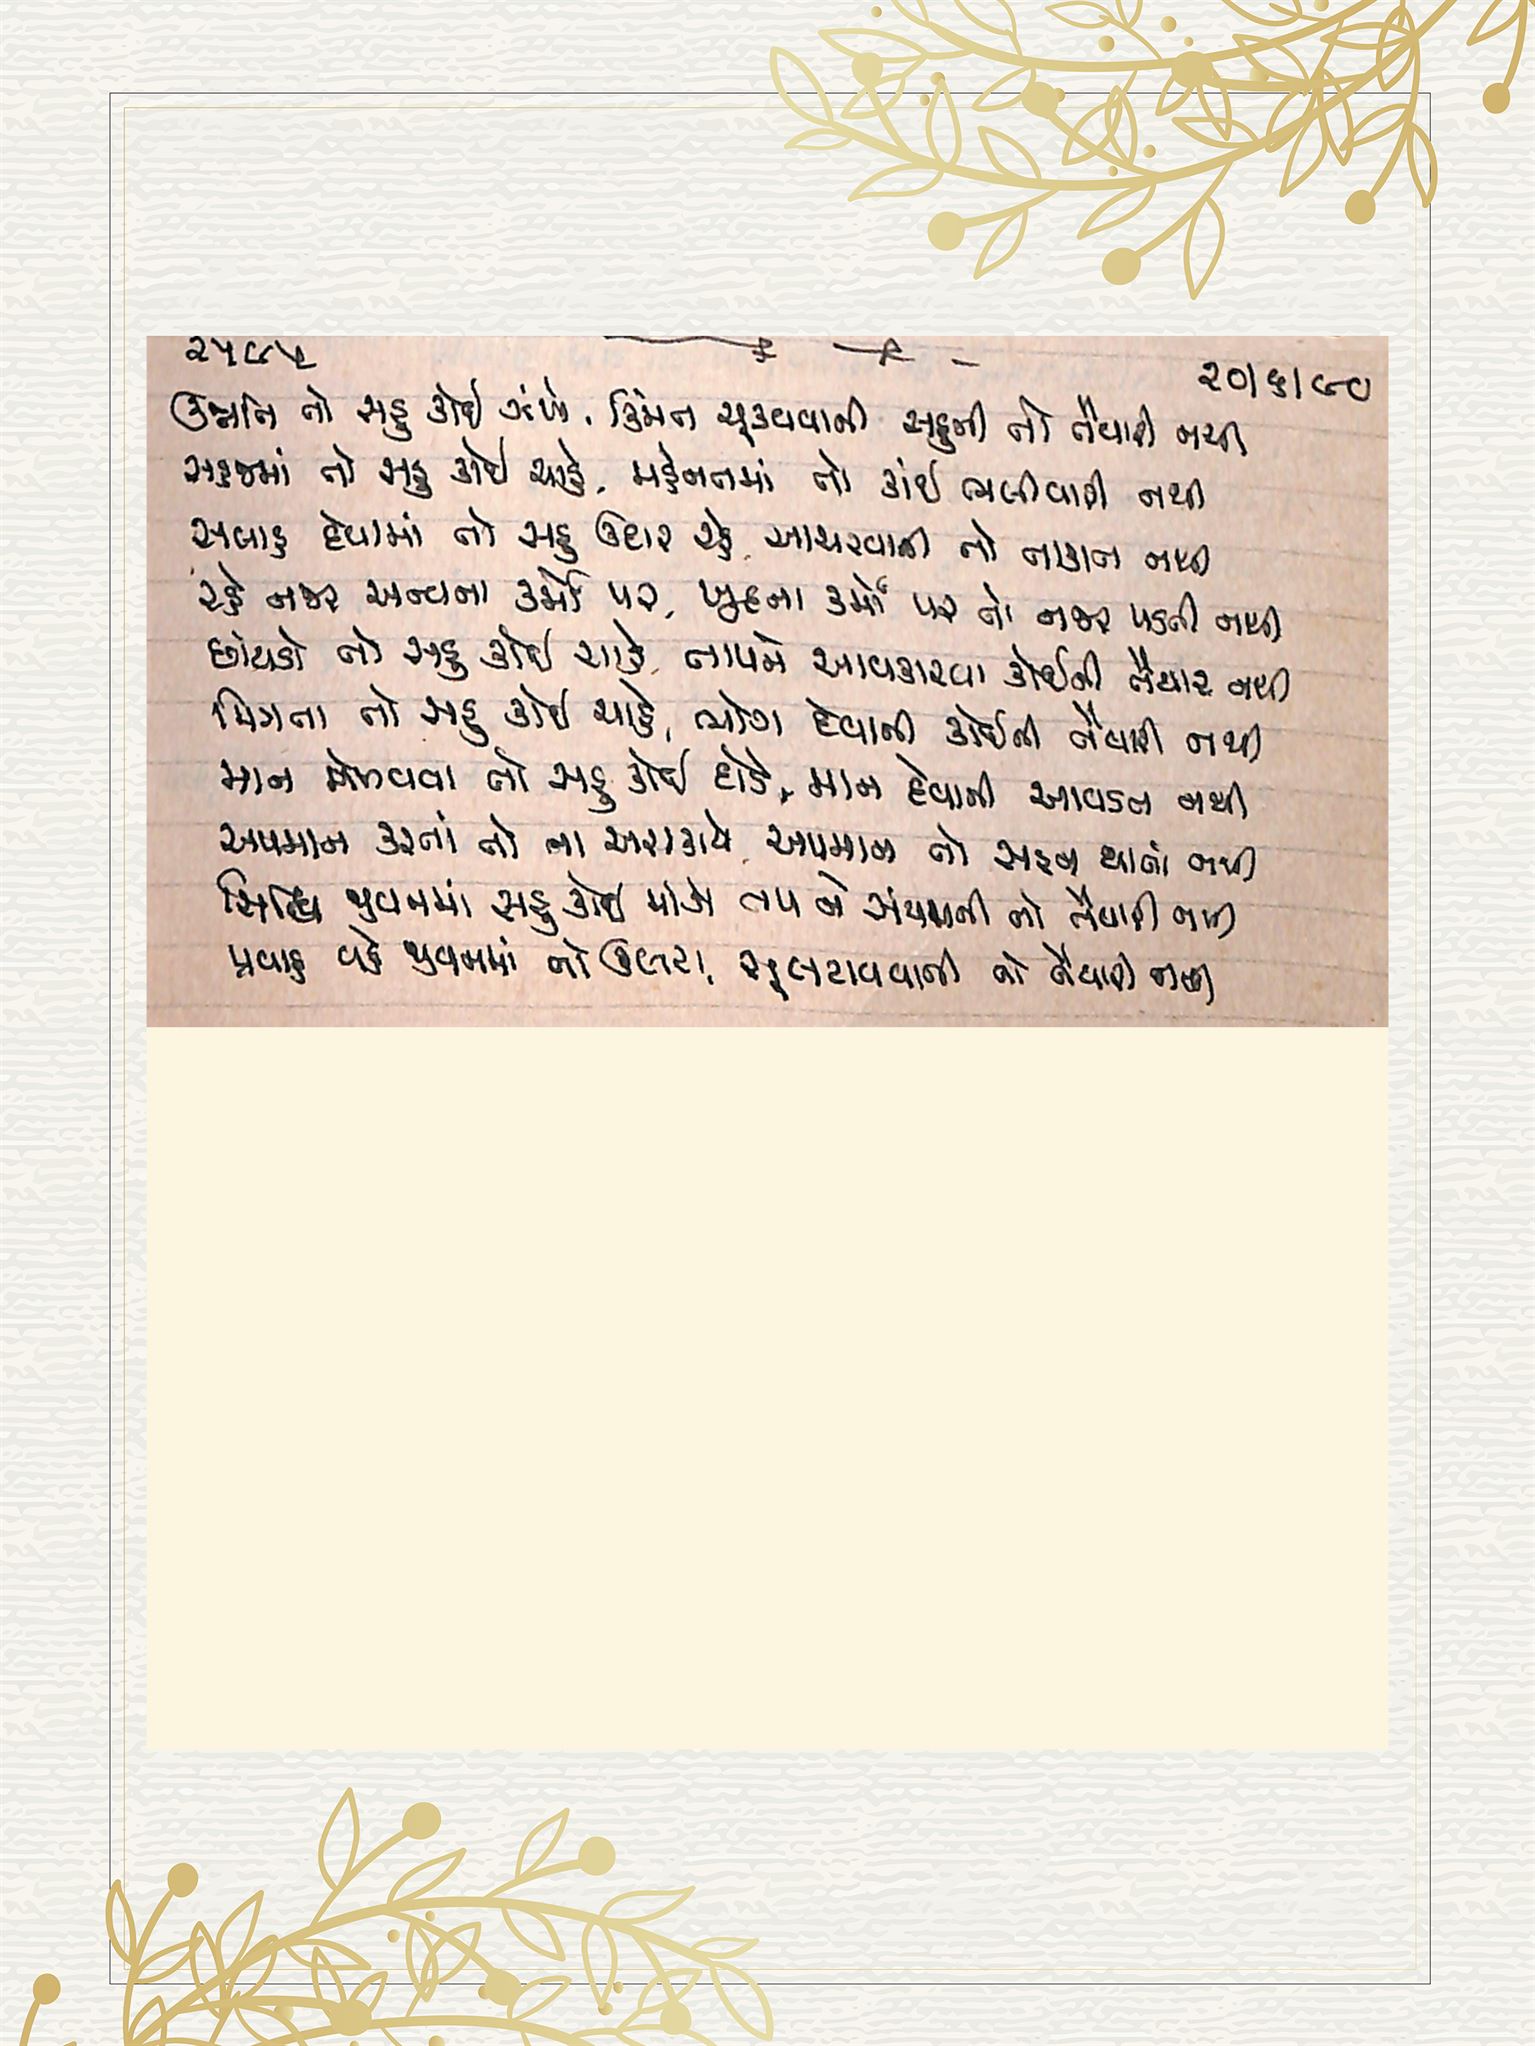 ૨૫૯૫
૨૦/૬/૯૦
ઉન્નતિ તો સહુ કોઈ ઝંખે, કિંમત ચૂકવવાની સહુની તો તૈયારી નથી
સહજમાં તો સહુ કોઈ ચાહે, મહેનતમાં તો કાંઈ ભલીવારી નથી
સલાહ દેવામાં તો સહુ ઉદાર રહે, આચરવાની તો તાકાત નથી
રહે નજર અન્યના કર્મો પર, ખુદના કર્મો પર તો નજર પડતી નથી
છાંયડો તો સહુ કોઈ ચાહે, તાપને આવકારવા કોઈની તૈયાર નથી
મિત્રતા તો સહુ કોઈ ચાહે, ભોગ દેવાની કોઈની તૈયારી નથી
માન મેળવવા તો સહુ કોઈ દોડે, માન દેવાની આવડત નથી
અપમાન કરતાં તો ના અચકાયે, અપમાન તો સહન થાતાં નથી
સિદ્ધિ જીવનમાં સહુ કોઈ માંગે તપ ને સંયમની તો તૈયારી નથી
પ્રવાહ વહે જીવનમાં તો ઉલટા, સૂલટાવવાની તો તૈયારી નથી